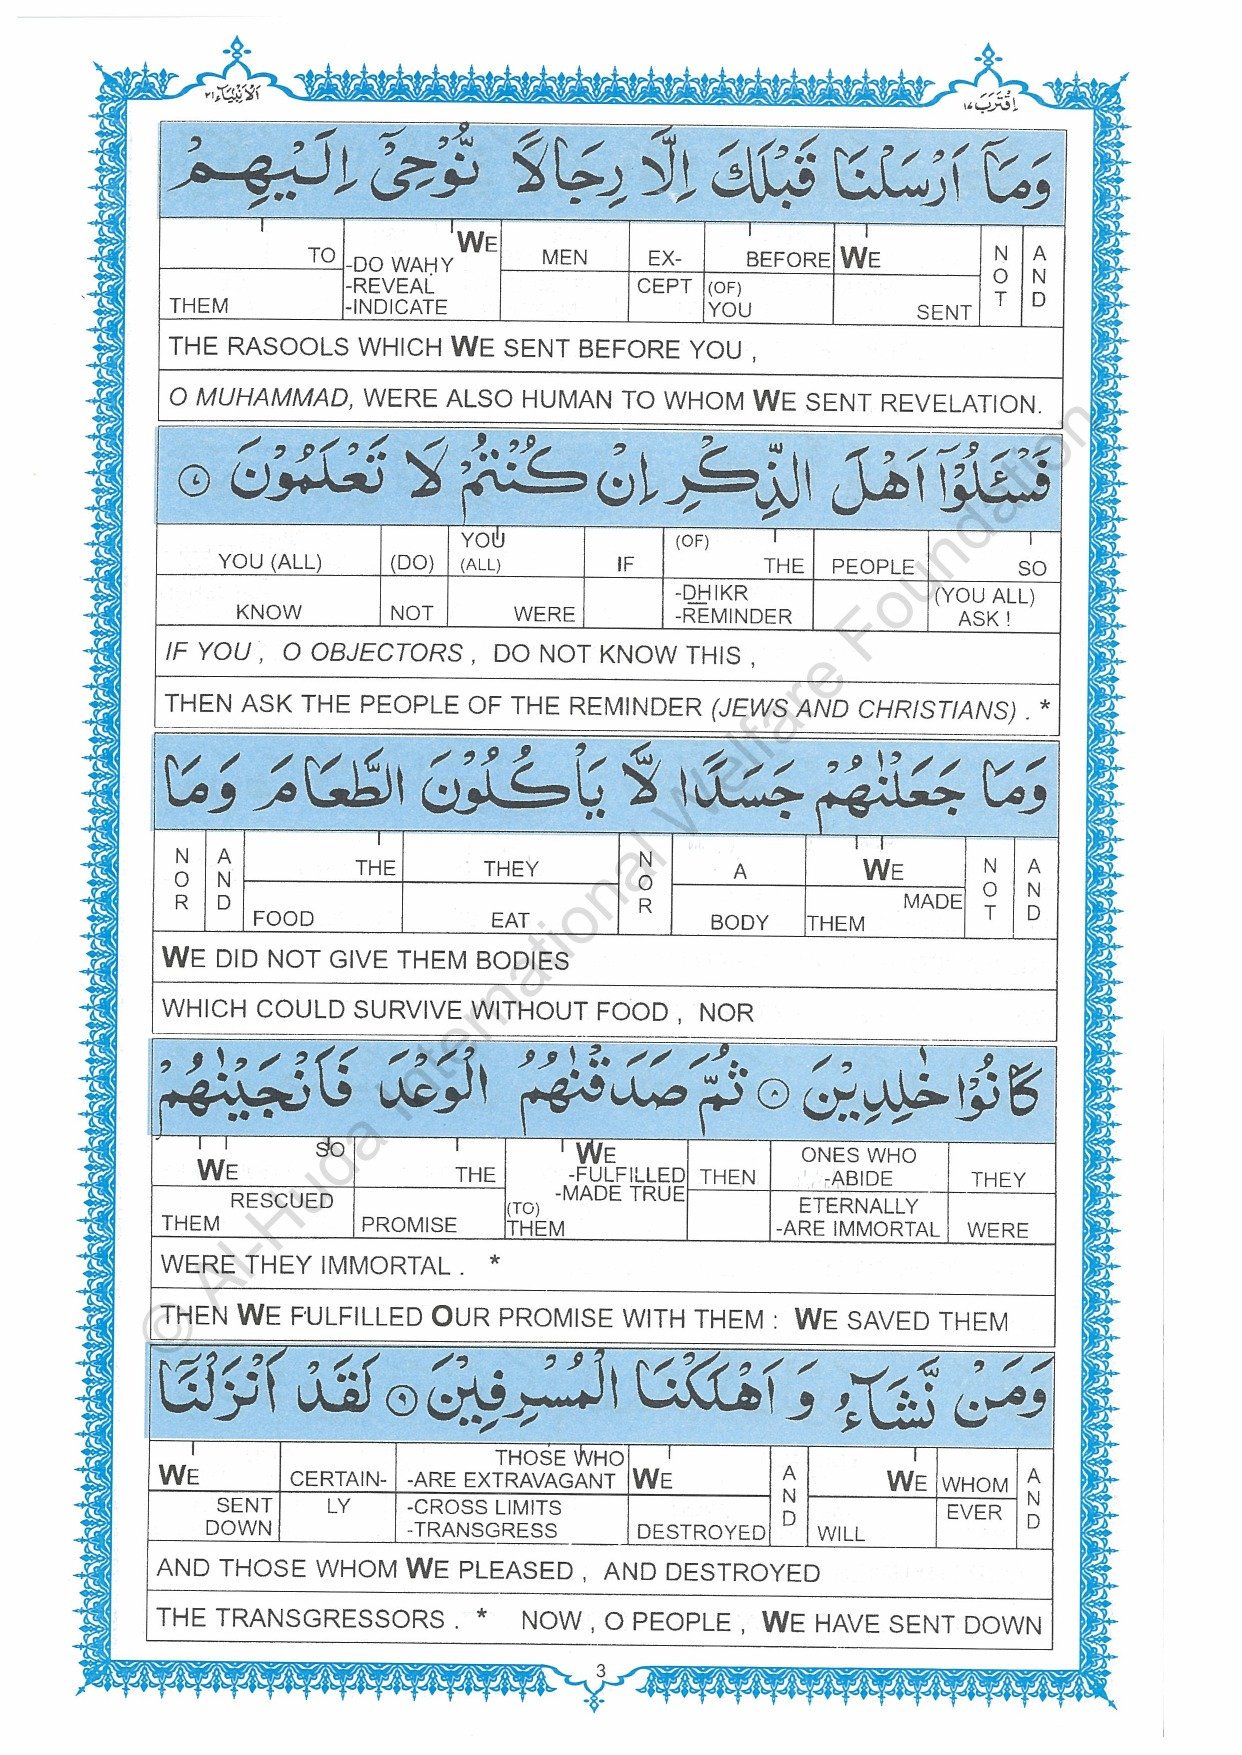 اَلْاَنْۢبِيَآء ٢١
اِقْتَرَبَ ١٧
وَمَاۤ اَرْسَلْنَا قَبْلَكَ اِلَّا رِجَالًا نُّوْحِيْۤ اِلَيْهِمْ
AND NOT WE SENT BEFORE (OF) YOU EX-CEPT MEN WE -DO WAḤY -REVEAL -INDICATE TO THEM
THE RASOOLS WHICH WE SENT BEFORE YOU ,
O MUHAMMAD, WERE ALSO HUMAN TO WHOM WE SENT REVELATION.
فَسْـَٔلُوْۤا اَهْلَ الذِّكْرِ اِنْ كُنْتُمْ لَا تَعْلَمُوْنَ ٧
SO (YOU ALL) ASK ! PEOPLE (OF) THE -DHIKR -REMINDER IF YOU (ALL) WERE (DO) NOT YOU (ALL) KNOW
IF YOU , O OBJECTORS , DO NOT KNOW THIS ,
THEN ASK THE PEOPLE OF THE REMINDER (JEWS AND CHRISTIANS) . *
وَمَا جَعَلْنٰهُمْ جَسَدًا لَّا يَاْكُلُوْنَ الطَّعَامَ وَمَا
AND NOT WE MADE THEM A BODY NOR THEY EAT THE FOOD AND NOR
WE DID NOT GIVE THEM BODIES
WHICH COULD SURVIVE WITHOUT FOOD , NOR
كَانُوْا خٰلِدِيْنَ ٨ ثُمَّ صَدَقْنٰهُمُ الْوَعْدَ فَاَنْجَيْنٰهُمْ
THEY WERE ONES WHO -ABIDE ETERNALLY -ARE IMMORTAL THEN WE -FULFILLED -MADE TRUE (TO) THEM THE PROMISE SO WE RESCUED THEM
WERE THEY IMMORTAL . *
THEN WE FULFILLED OUR PROMISE WITH THEM : WE SAVED THEM
وَمَنْ نَّشَآءُ وَ اَهْلَكْنَا الْمُسْرِفِيْنَ ٩ لَقَدْ اَنْزَلْنَا
AND WHOM EVER WE WILL AND WE DESTROYED THOSE WHO -ARE EXTRAVAGANT -CROSS LIMITS -TRANSGRESS CERTAIN-LY WE SENT DOWN
AND THOSE WHOM WE PLEASED , AND DESTROYED
THE TRANSGRESSORS . * NOW , O PEOPLE , WE HAVE SENT DOWN
3
© Al-Huda International Welfare Foundation